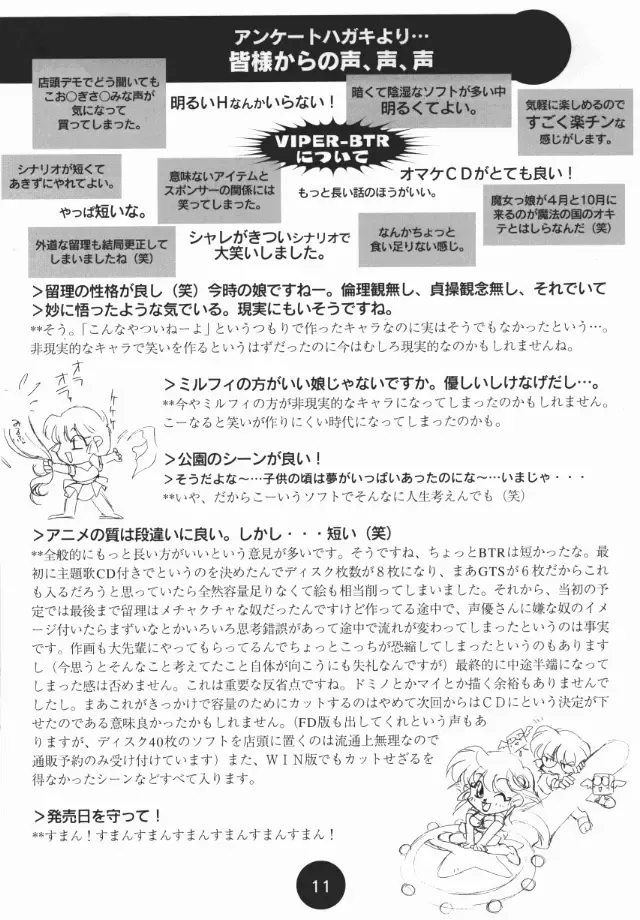 アンケートハガキより…
皆様からの声、声、声
店頭デモでどう聞いても
こお○ぎさ○みな声が
気になって
買ってしまった。
明るいＨなんかいらない！
暗くて陰湿なソフトが多い中
明るくてよい。
気軽に楽しめるので
すごく楽チンな
感じがします。
VIPER-BTR
について
シナリオが短くて
あきずにやれてよい。
意味ないアイテムと
スポンサーの関係には
笑ってしまった。
オマケＣＤがとても良い！
もっと長い話のほうがいい。
やっぱ短いな。
魔女っ娘が４月と10月に
来るのが魔法の国のオキ
テとはしらなんだ（笑）
外道な留理も結局更正して
しまいましたね（笑）
シャレがきついシナリオで
大笑いしました。
なんかちょっと
食い足りない感じ。
＞留理の性格が良し（笑）今時の娘ですねー。倫理観無し、貞操観念無し、それでいて
＞妙に悟ったような気でいる。現実にもいそうですね。
**そう。「こんなやついねーよ」というつもりで作ったキャラなのに実はそうでもなかったという…。
非現実的なキャラで笑いを作るというはずだったのに今はむしろ現実的なのかもしれませんね。
オラ
オラ
＞ミルフィの方がいい娘じゃないですか。優しいしけなげだし…。
**今やミルフィの方が非現実的なキャラになってしまったのかもしれません。
こーなると笑いが作りにくい時代になってしまったのかも。
＞公園のシーンが良い！
＞そうだよな～…子供の頃は夢がいっぱいあったのにな～…いまじゃ・・・
**いや、だからこーいうソフトでそんなに人生考えんでも（笑）
＞アニメの質は段違いに良い。しかし・・・短い（笑）
**全般的にもっと長い方がいいという意見が多いです。そうですね、ちょっとBTRは短かったな。最
初に主題歌CD付きでというのを決めたんでディスク枚数が８枚になり、まあGTSが６枚だからこれ
も入るだろうと思っていたら全然容量足りなくて絵も相当削ってしまいました。それから、当初の予
定では最後まで留理はメチャクチャな奴だったんですけど作ってる途中で、声優さんに嫌な奴のイメ
ージ付いたらまずいなとかいろいろ思考錯誤があって途中で流れが変わってしまったというのは事実
です。作画も大先輩にやってもらってるんでちょっとこっちが恐縮してしまったというのもあります
し（今思うとそんなこと考えてたこと自体が向こうにも失礼なんですが）最終的に中途半端になって
しまった感は否めません。これは重要な反省点ですね。ドミノとかマイとか描く余裕もありませんで
したし。まあこれがきっかけで容量のためにカットするのはやめて次回からはＣＤにという決定が下
せたのである意味良かったかもしれません。（FD版も出してくれという声もあ
りますが、ディスク40枚のソフトを店頭に置くのは流通上無理なので
通販予約のみ受け付けています）また、ＷＩＮ版でもカットせざるを
得なかったシーンなどすべて入ります。
＞発売日を守って！
**すまん！すまんすまんすまんすまんすまんすまん！
11